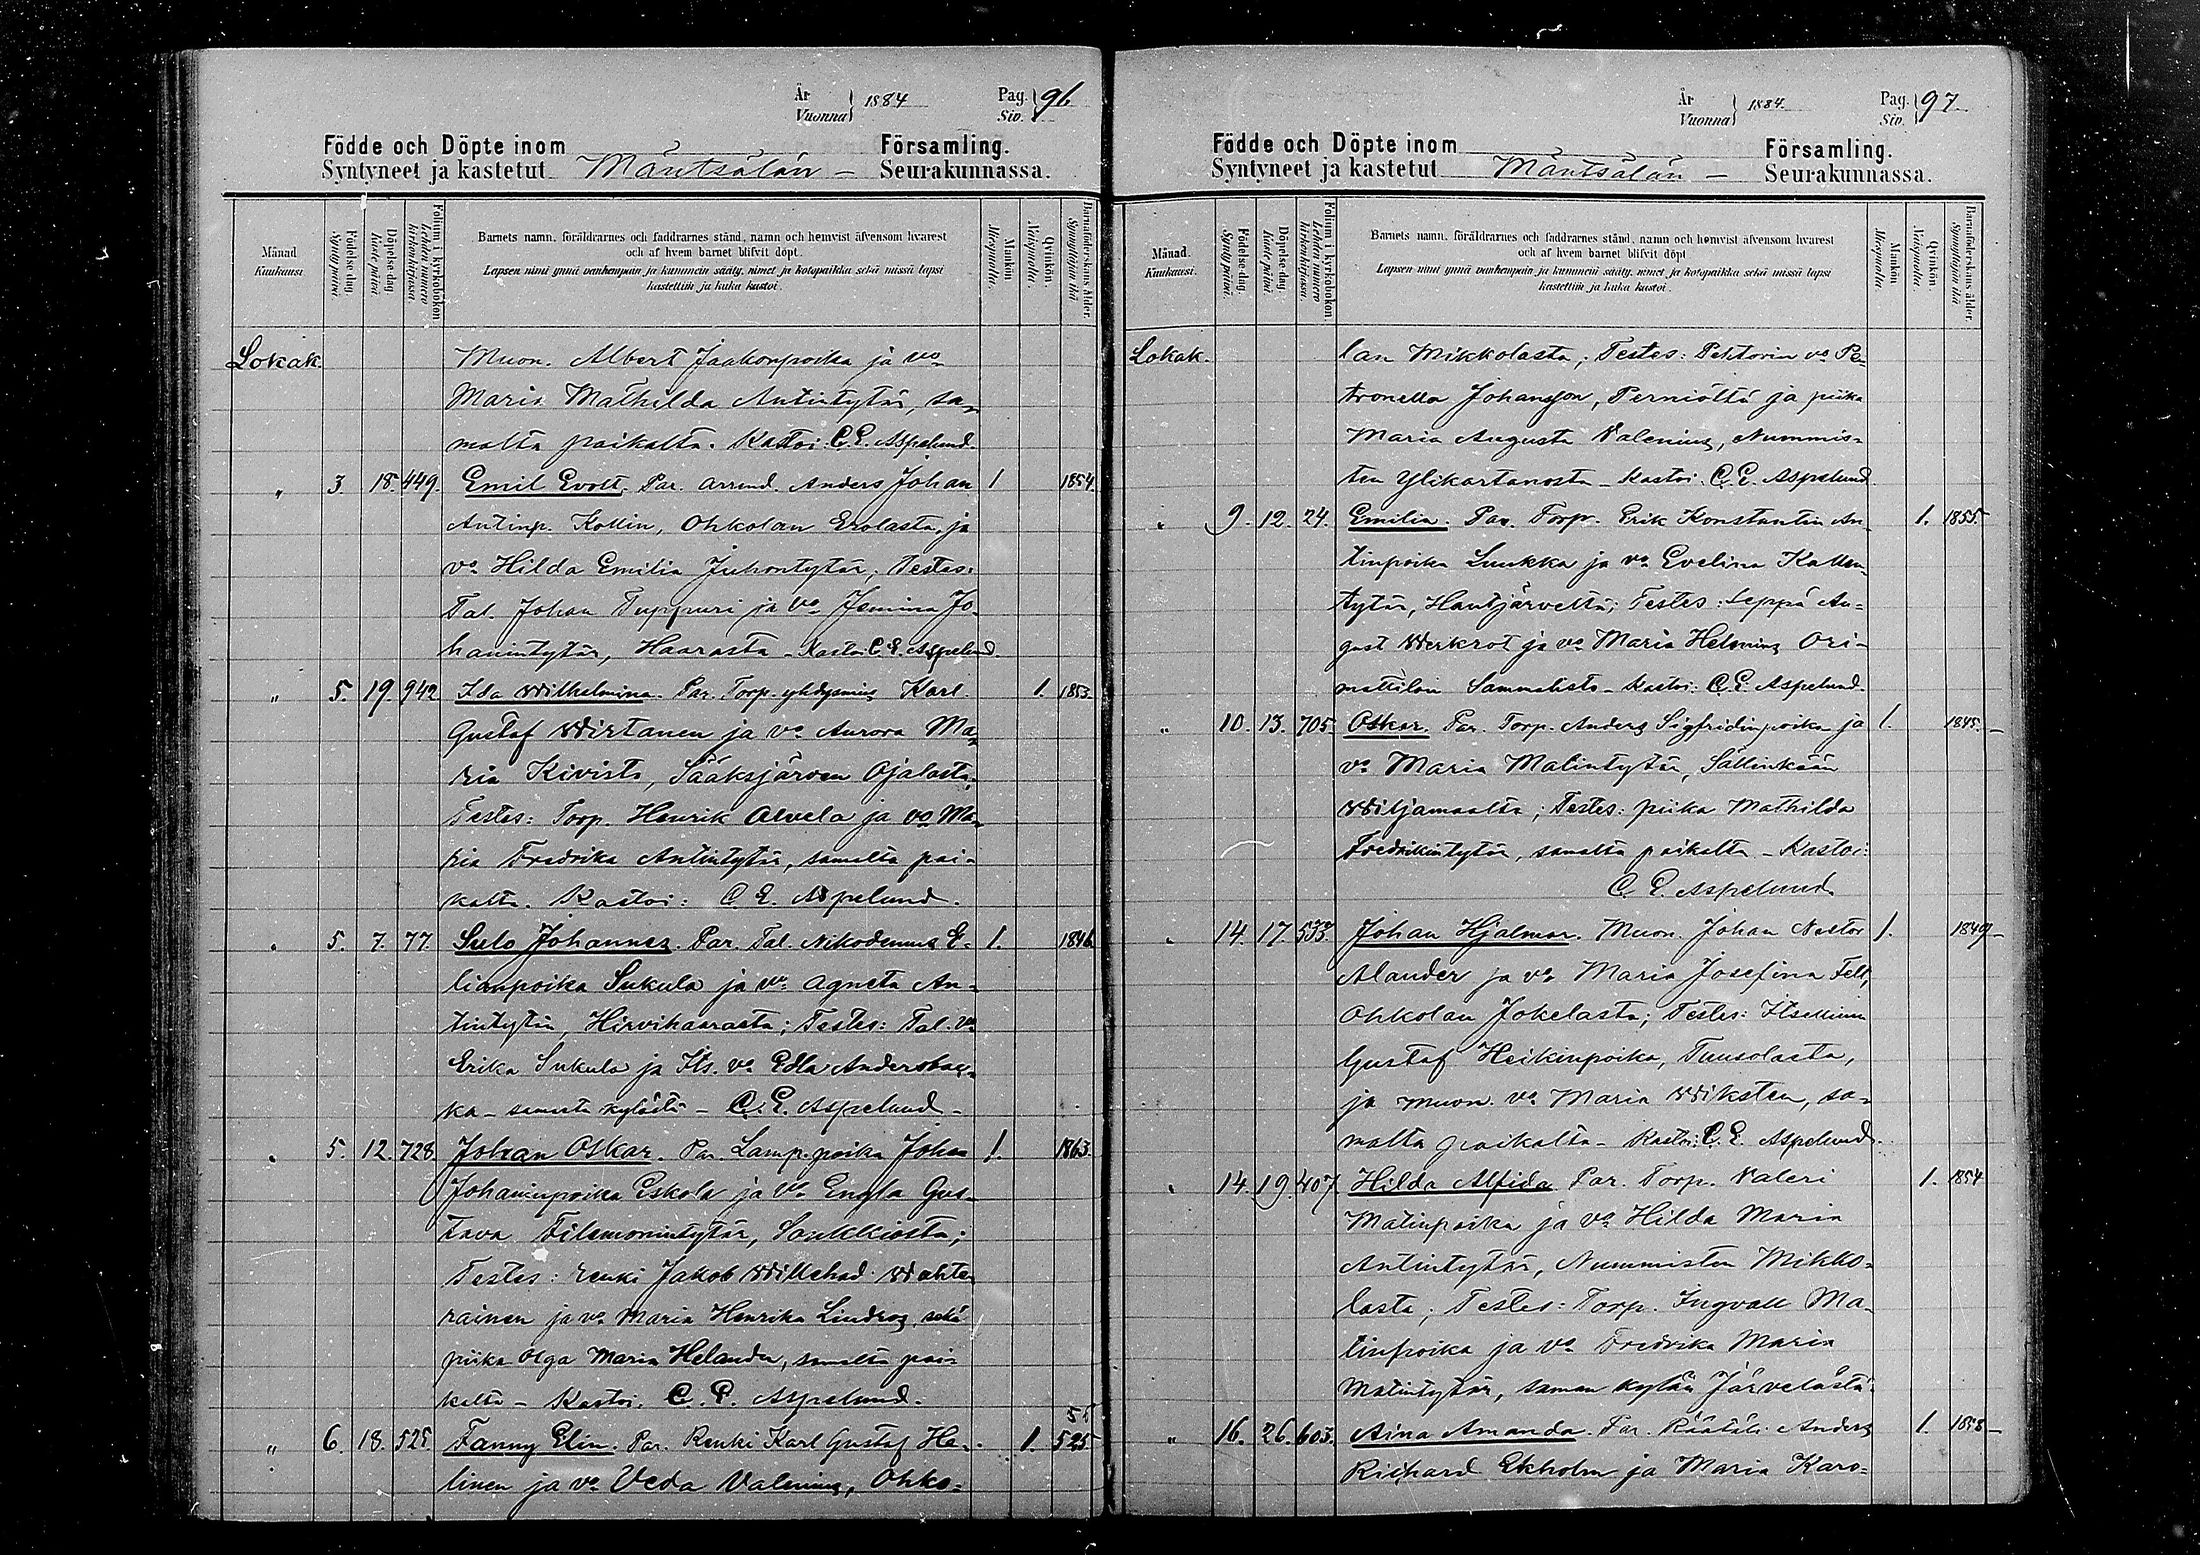 År
Vuonna } 1884
Pag.
Siv. } 96
Födde och Döpte inom Församling.
Syntyneet ja kastetut Mäntsälän – Seurakunnassa.
Månad
Kuukausi.
Födelse-dag.
Syntympäivä.
Döpelse-dag.
Kaste päivä.
Folium i kyrkoboken
Lehden numero kirkonkirjassa.
Barnets namn, föräldrarnes och faddrarnes stånd, namn och hemvist äfvensom hvarest
och af hvem barnet blifvit döpt.
Lapsen nimi ynnä vanhempain ja kummein sääty, nimet ja kotopaikka sekä missä lapsi
kastettiin ja kuka kastoi.
Mankön.
Miespuolta.
Qvinkön.
Naispuolta.
Barnaföderskans ålder.
Synnyttäjän ikä
Lokak. Muon. Albert Jaakonpoika ja vo
Maria Mathilda Antintytär, sa-
malta paikalta. Kastoi: C. E. Aspelund.
" 3. 18. 449. Emil Evott. Par. arrend. Anders Johan 1 1854.
Antinp. Kollin, Ohkolan Erolasta, ja
vo. Hilda Emilia Juhontytär; Testes:
Tal. Johan Tuppuri ja vo Jemina Jo-
hanintytär, Haarasta – Kastoi C. E. Aspelund.
" 5. 19. 942 Ida Wilhelmina. Par. Torp. yhdysmies Karl 1. 1853.
Gustaf Wirtanen ja vo Aurora Ma-
ria Kivistö, Sääksjärven Ojalasta,
Testes: Torp. Henrik Alvela ja vo Ma-
ria Fredrika Antintytär, samalta pai-
kalta. Kastoi: C. E. Aspelund.
" 5. 7. 77. Sulo Johannes. Par. Tal. Nikodemus E- 1. 1846.
lianpoika Sukula ja vo. Agneta An-
tintytär, Hirvihaarasta; Testes: Tal. vo
Erika Sukula ja Its. vo Edla Andersbac-
ka – samasta kylästä – C. E. Aspelund –
" 5. 12. 728. Johan Oskar. Par. Lamp.poika Johan 1. 1863.
Johaninpoika Eskola ja vo Engla Gus-
tava Filemonintytär, Soukkiosta;
Testes: renki Jakob Willehad Wahte-
rainen ja vo Maria Henrika Lindros, sekä
piika Olga Maria Helander, samalta pai-
kalta – Kastoi. C. E. Aspelund.
" 6. 18. 525. Fanny Elin. Par. Renki Karl Gustaf He- 1. 55 525
linen ja vo Veda Valenius, Ohko-
År
Vuonna } 1884.
Pag.
Siv. } 97
Födde och Döpte inom Församling.
Syntyneet ja kastetut Mäntsälän – Seurakunnassa.
Månad.
Kuukausi.
Födelse-dag.
Syntympäivä.
Döpelse-dag
Kaste päivä.
Folium i kyrkoboken.
Lehden numero kirkonkirjassa.
Barnets namn, föräldrarnes och faddrarnes stånd, namn och hemvist äfvensom hvarest
och af hvem barnet blifvit döpt
Lapsen nimi ynnä vanhempain ja kummein sääty, nimet ja kotopaikka sekä missä lapsi
kastettiin ja kuka kastoi.
Mankön
Miespuolta.
Qvinkön.
Naispuolta.
Barnaföderskans ålder.
Synnyttäjän ikä
Lokak. lan Mikkolasta; Testes: vo Pe-
tronella Johansson, Perniöltä ja piika
Maria Augusta Valenius, Nummis-
ten Ylikartanosta – Kastoi. C. E. Aspelund
" 9. 12. 24. Emilia. Par. Torp. Erik Konstantin An- 1. 1855.
tinpoika Luukka ja vo Evelina Kallen-
tytär, Hautjärveltä; Testes: Seppä Au-
gust Werkrot ja vo Maria Helenius Ori-
mattilan Sammalisto – Kastoi: C. E. Aspelund.
" 10. 13. 705. Oskar. Par. Torp. Anders Sigfridinpoika ja 1. 1845.
vo Maria Matintytär, Sälinkään
Witjamaalta; Testes: piika Mathilda
Fredrikintytär, samalta paikalta – Kastoi:
C. E. Aspelund.
" 14. 17. 533 Johan Hjalmar. Muon. Johan Nestor 1. 1849
Alander ja vo Maria Josefina Fell,
Ohkolan Jokelasta; Testes: Itsellinen
Gustaf Heikinpoika, Tuusolasta,
ja muon. vo Maria Wiksten, sa-
malta paikalta – Kastoi: C. E. Aspelund.
" 14. 19. 407 Hilda Alfida. Par. Torp. Valeri 1. 1854
Matinpoika ja vo Hilda Maria
Antintytär, Nummisten Mikko-
lasta; Testes: Torp. Ingvall Ma-
tinpoika ja vo Fredrika Maria
Matintytär, saman kylän Järvelästä.
" 16. 26. 603. Aina Amanda. Par. Räätäli Anders 1. 1858
Richard Ekholm ja Maria Karo-